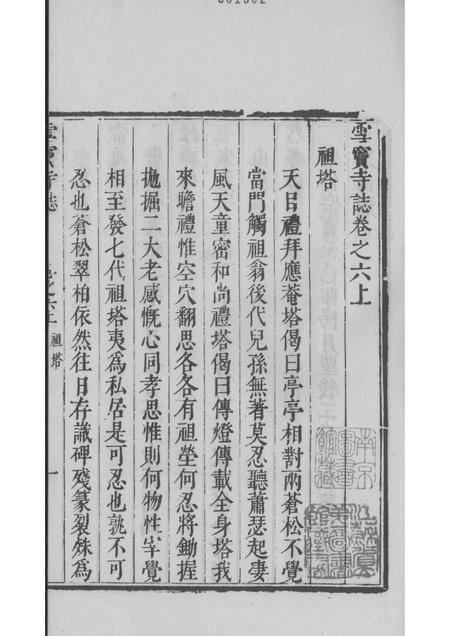 雪竇寺誌卷之六上
祖塔
天目禮拜應菴塔偈曰亭亭相對兩蒼松不覺
當門觸祖翁後代兒孫無著莫忍聽蕭瑟起凄
風天童密和尚禮塔偈曰傳燈傳載全身塔我
來瞻禮惟空穴翻思各各有祖塋何忍將鋤握
拖掘二大老感慨心同孝思惟則何物性宰覺
相至發七代祖塔夷為私居是可忍也孰不可
忍也蒼松翠柏依然往日存識碑殘篆裂姝為
雪竇寺誌
卷之六上
祖塔
一